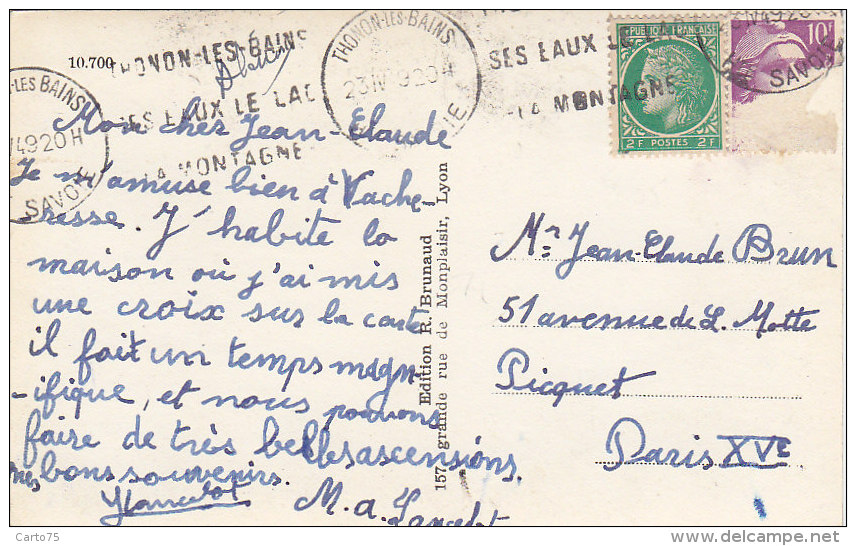 10.700
THONON-LES-BAINS
SES EAUX LE LAC
LA MONTAGNE
THONON-LES-BAINS
23 IV 1920 4
SES EAUX LE LAC
LA MONTAGNE
SAVOIE
-LES BAINS
4920H
SAVOIE
REPUBLIQUE FRANÇAISE
2F POSTES 2F
10F
Mon cher Jean-Claude
Je m'amuse bien à Vache-
resse. J'habite la
maison où j'ai mis
une croix sur la carte
il fait un temps magn-
-ifique, et nous pouvons
faire de très belles ascensions.
mes bons souvenirs.
M. a. Lancelot
Edition R. Brunaud
157, grande rue de Monplaisir, Lyon
Mr. Jean-Claude Brun
51 avenue de L. Motte
Picquet
Paris XVe
Carto75
www.delcampe.net